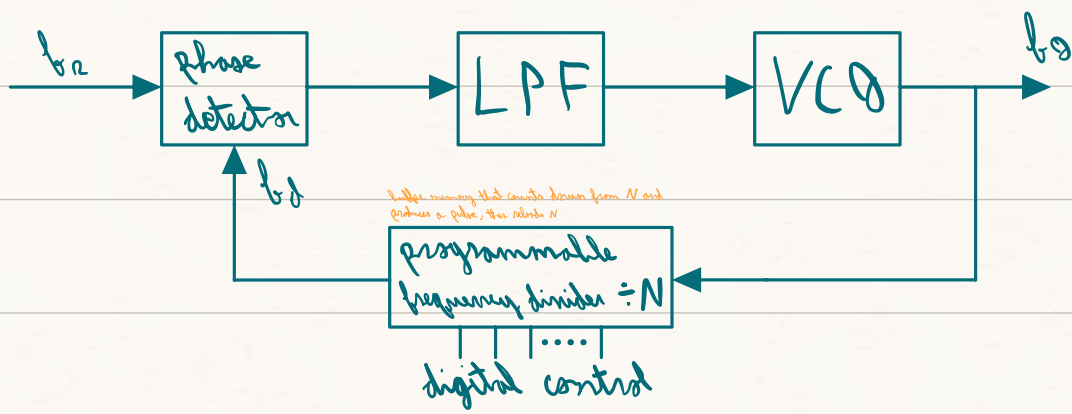 fR
phase
detector
LPF
VCO
fO
fd
buffer memory that counts down from N and
produces a pulse, then reloads N
programmable
frequency divider ÷N
digital control